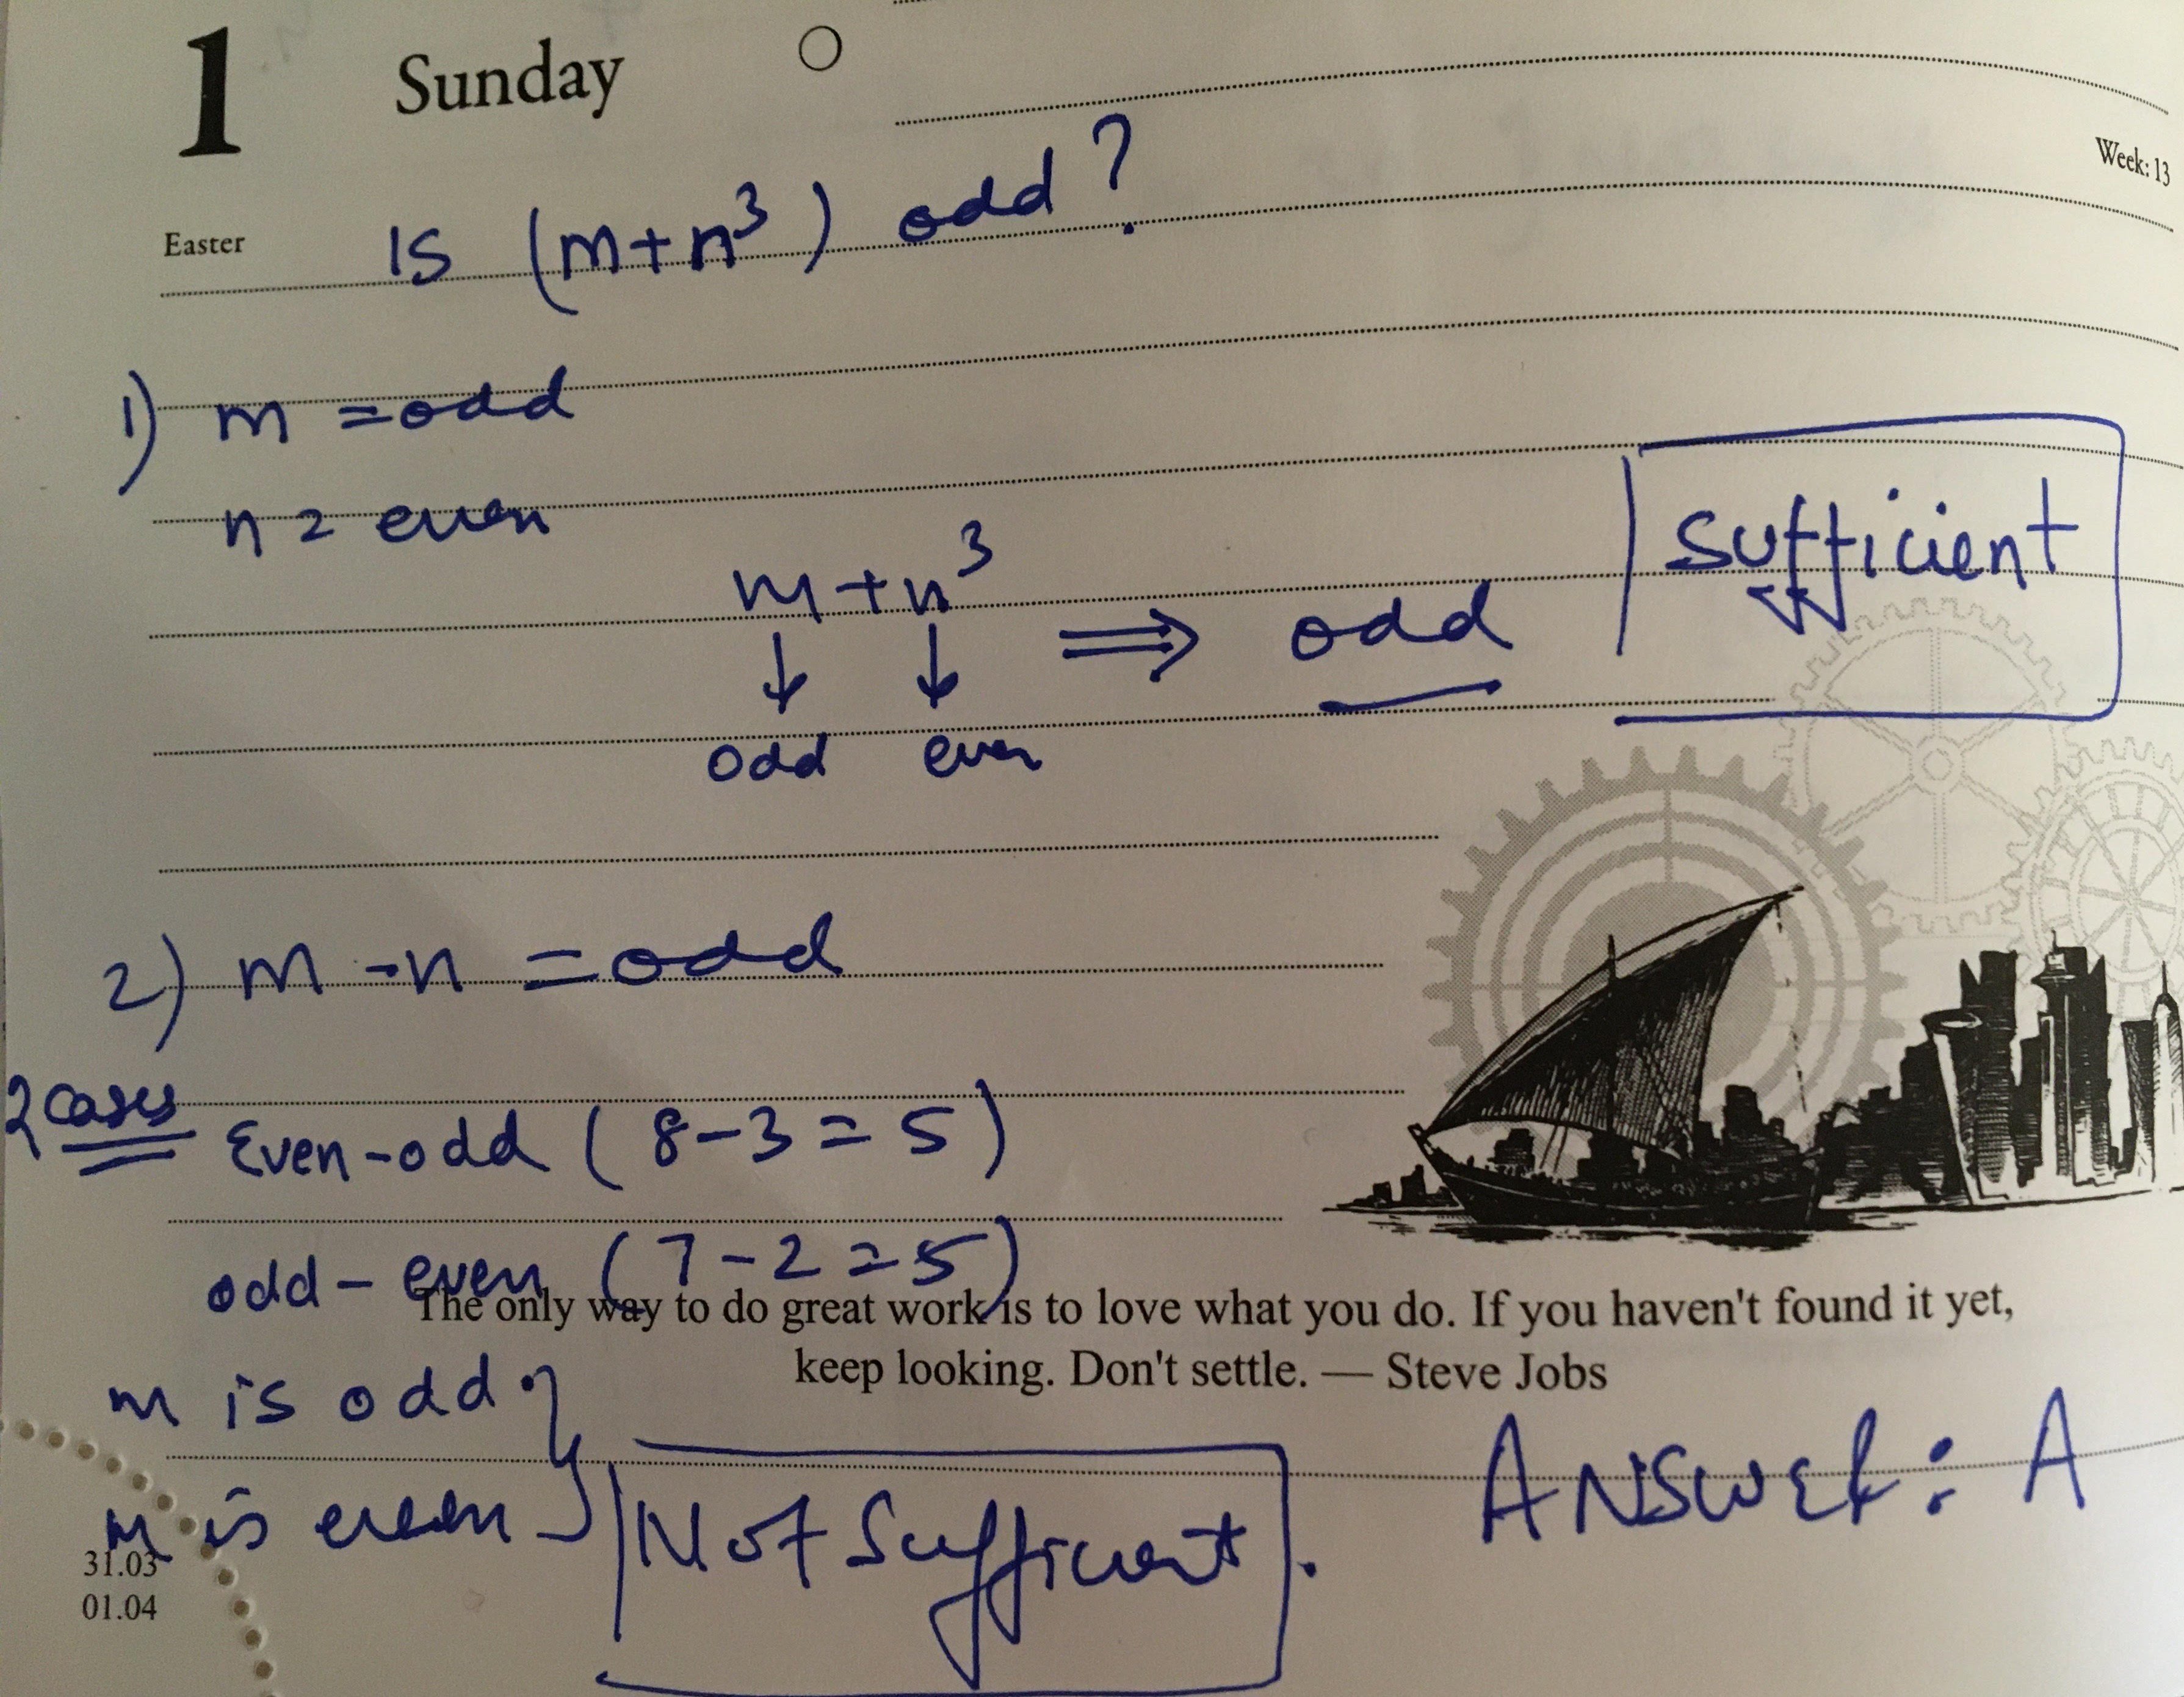 1 Sunday
Week: 13
Easter
IS (m+n³) odd?
1) m = odd
n = even
m+n³ ⇒ odd
Sufficient
↓ ↓
odd even
2) m - n = odd
2 cases
Even-odd (8-3=5)
odd - even (7-2=5)
The only way to do great work is to love what you do. If you haven't found it yet,
keep looking. Don't settle. — Steve Jobs
m is odd
m is even
Not Sufficient.
ANSWER: A
31.03
01.04